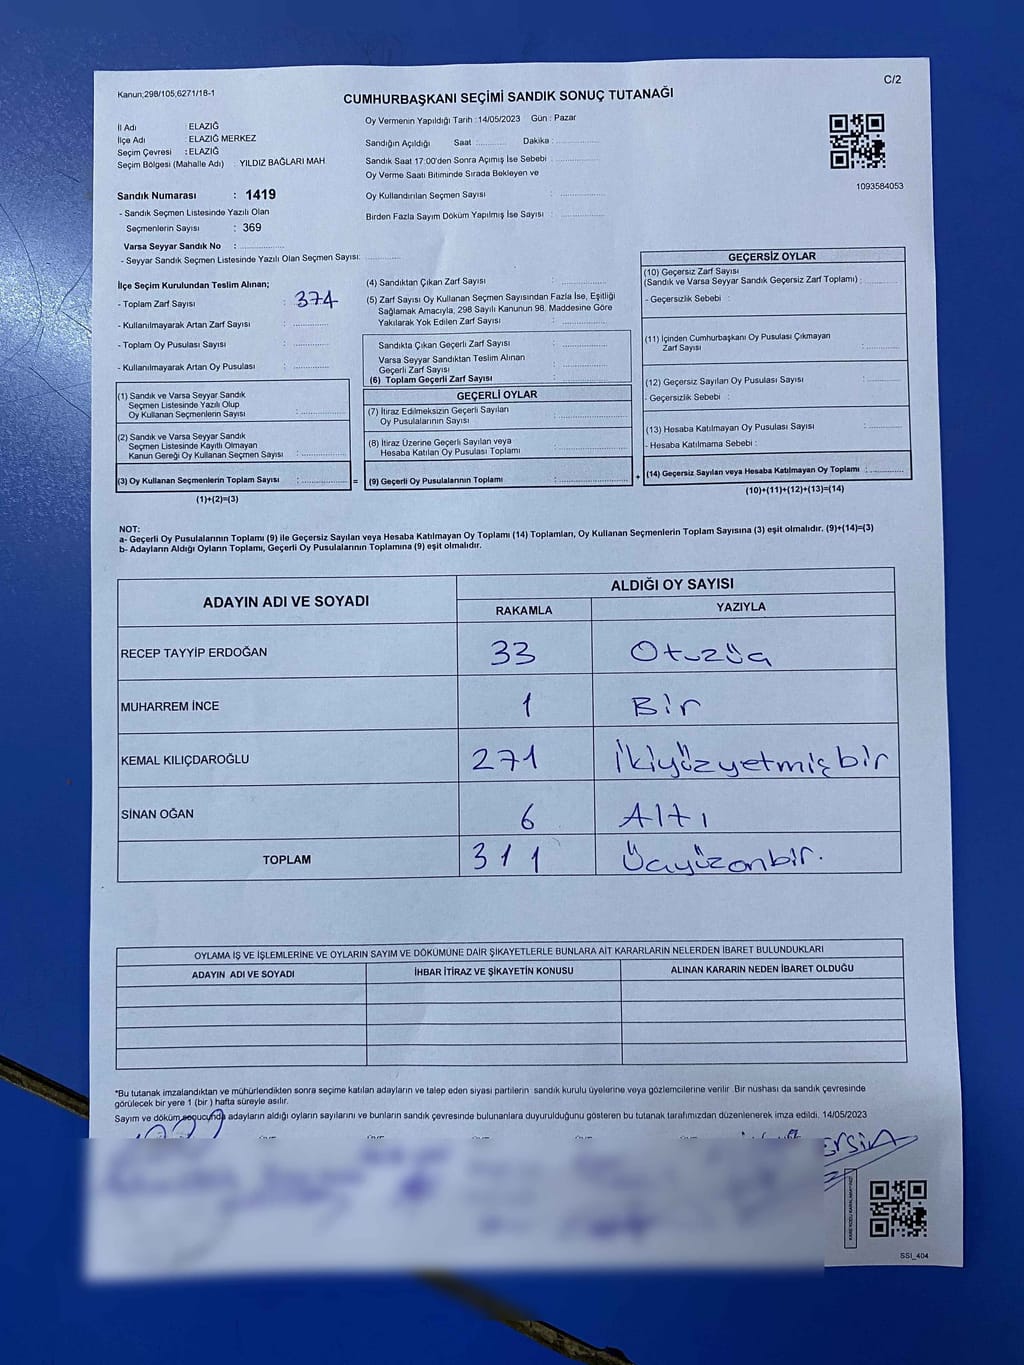 Kanun;298/105,6271/18-1
C/2
CUMHURBAŞKANI SEÇİMİ SANDIK SONUÇ TUTANAĞI
İl Adı : ELAZIĞ
İlçe Adı : ELAZIĞ MERKEZ
Seçim Çevresi : ELAZIĞ
Seçim Bölgesi (Mahalle Adı) : YILDIZ BAĞLARI MAH
Sandık Numarası : 1419
- Sandık Seçmen Listesinde Yazılı Olan
Seçmenlerin Sayısı : 369
Varsa Seyyar Sandık No :
- Seyyar Sandık Seçmen Listesinde Yazılı Olan Seçmen Sayısı:
Oy Vermenin Yapıldığı Tarih : 14/05/2023 Gün : Pazar
Sandığın Açıldığı Saat : Dakika :
Sandık Saat 17:00'den Sonra Açımış İse Sebebi :
Oy Verme Saati Bitiminde Sırada Bekleyen ve
Oy Kullandırılan Seçmen Sayısı :
Birden Fazla Sayım Döküm Yapılmış İse Sayısı :
1093584053
İlçe Seçim Kurulundan Teslim Alınan;
- Toplam Zarf Sayısı : 374
- Kullanılmayarak Artan Zarf Sayısı :
- Toplam Oy Pusulası Sayısı :
- Kullanılmayarak Artan Oy Pusulası :
(1) Sandık ve Varsa Seyyar Sandık
Seçmen Listesinde Yazılı Olup
Oy Kullanan Seçmenlerin Sayısı :
(2) Sandık ve Varsa Seyyar Sandık
Seçmen Listesinde Kayıtlı Olmayan
Kanun Gereği Oy Kullanan Seçmen Sayısı :
(3) Oy Kullanan Seçmenlerin Toplam Sayısı :
(1)+(2)=(3)
=
(4) Sandıktan Çıkan Zarf Sayısı :
(5) Zarf Sayısı Oy Kullanan Seçmen Sayısından Fazla İse, Eşitliği
Sağlamak Amacıyla, 298 Sayılı Kanunun 98. Maddesine Göre
Yakılarak Yok Edilen Zarf Sayısı :
Sandıkta Çıkan Geçerli Zarf Sayısı :
Varsa Seyyar Sandıktan Teslim Alınan
Geçerli Zarf Sayısı :
(6) Toplam Geçerli Zarf Sayısı :
GEÇERLİ OYLAR
(7) İtiraz Edilmeksizin Geçerli Sayılan
Oy Pusulalarının Sayısı :
(8) İtiraz Üzerine Geçerli Sayılan veya
Hesaba Katılan Oy Pusulası Toplamı :
(9) Geçerli Oy Pusulalarının Toplamı :
+
GEÇERSİZ OYLAR
(10) Geçersiz Zarf Sayısı
(Sandık ve Varsa Seyyar Sandık Geçersiz Zarf Toplamı) :
- Geçersizlik Sebebi :
(11) İçinden Cumhurbaşkanı Oy Pusulası Çıkmayan
Zarf Sayısı :
(12) Geçersiz Sayılan Oy Pusulası Sayısı :
- Geçersizlik Sebebi :
(13) Hesaba Katılmayan Oy Pusulası Sayısı :
- Hesaba Katılmama Sebebi :
(14) Geçersiz Sayılan veya Hesaba Katılmayan Oy Toplamı :
(10)+(11)+(12)+(13)=(14)
NOT:
a- Geçerli Oy Pusulalarının Toplamı (9) ile Geçersiz Sayılan veya Hesaba Katılmayan Oy Toplamı (14) Toplamları, Oy Kullanan Seçmenlerin Toplam Sayısına (3) eşit olmalıdır. (9)+(14)=(3)
b- Adayların Aldığı Oyların Toplamı, Geçerli Oy Pusulalarının Toplamına (9) eşit olmalıdır.
ADAYIN ADI VE SOYADI
ALDIĞI OY SAYISI
RAKAMLA YAZIYLA
RECEP TAYYİP ERDOĞAN 33 Otuzüç
MUHARREM İNCE 1 Bir
KEMAL KILIÇDAROĞLU 271 İkiyüzyetmişbir
SİNAN OĞAN 6 Altı
TOPLAM 311 Üçyüzonbir.
OYLAMA İŞ VE İŞLEMLERİNE VE OYLARIN SAYIM VE DÖKÜMÜNE DAİR ŞİKAYETLERLE BUNLARA AİT KARARLARIN NELERDEN İBARET BULUNDUKLARI
ADAYIN ADI VE SOYADI İHBAR İTİRAZ VE ŞİKAYETİN KONUSU ALINAN KARARIN NEDEN İBARET OLDUĞU
*Bu tutanak imzalandıktan ve mühürlendikten sonra seçime katılan adayların ve talep eden siyasi partilerin sandık kurulu üyelerine veya gözlemcilerine verilir Bir nüshası da sandık çevresinde
görülecek bir yere 1 (bir ) hafta süreyle asılır.
Sayım ve döküm sonucunda adayların aldığı oyların sayılarını ve bunların sandık çevresinde bulunanlara duyurulduğunu gösteren bu tutanak tarafımızdan düzenlenerek imza edildi. 14/05/2023
SSI_404